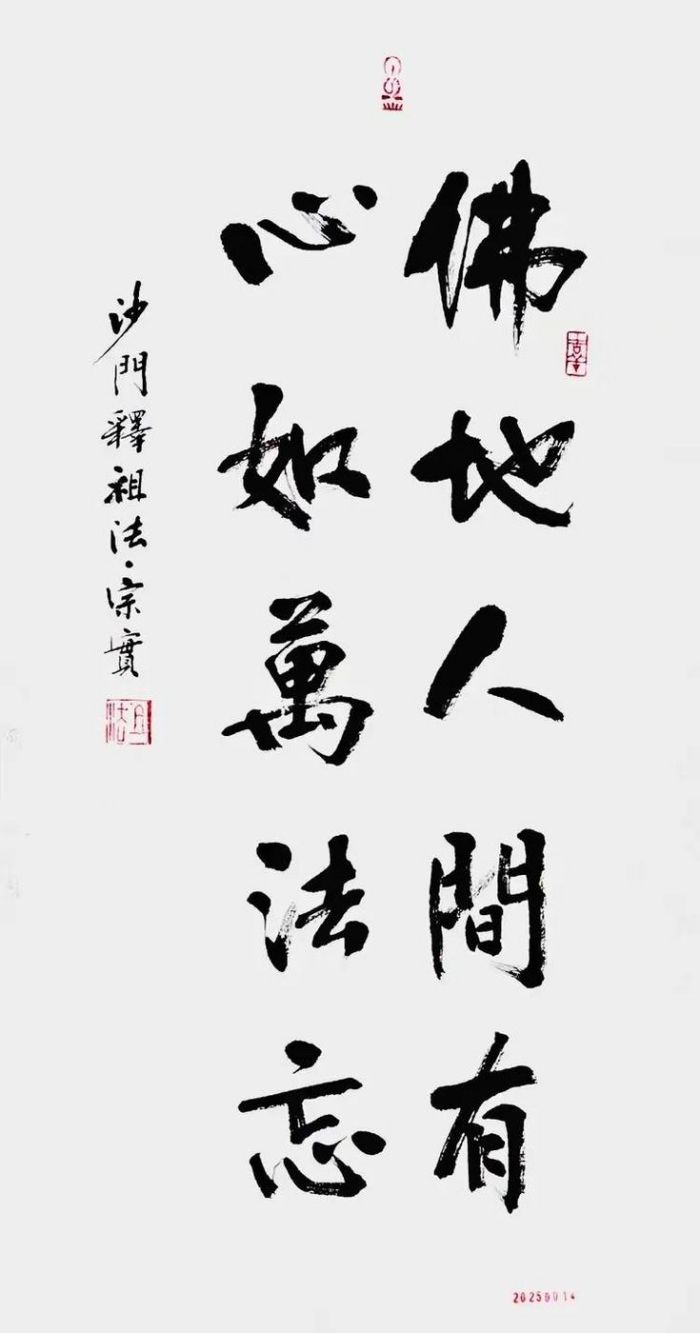 佛地人間有
心如萬法忘
沙門釋祖法·宗實
祖法